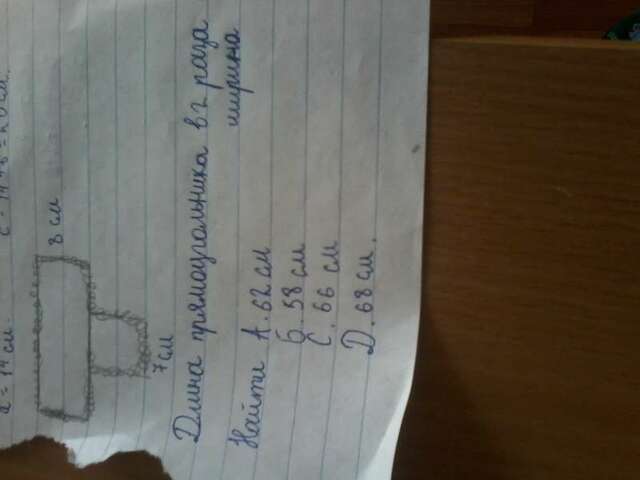 8 см
7 см
Длина прямоугольника в 2 раза
ширина
Найти А. 62 см
Б. 58 см
С. 66 см
D. 68 см.